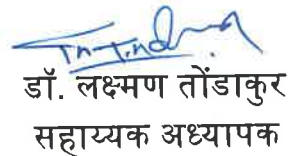 डॉ. लक्ष्मण तोंडाकुर
सहाय्यक अध्यापक